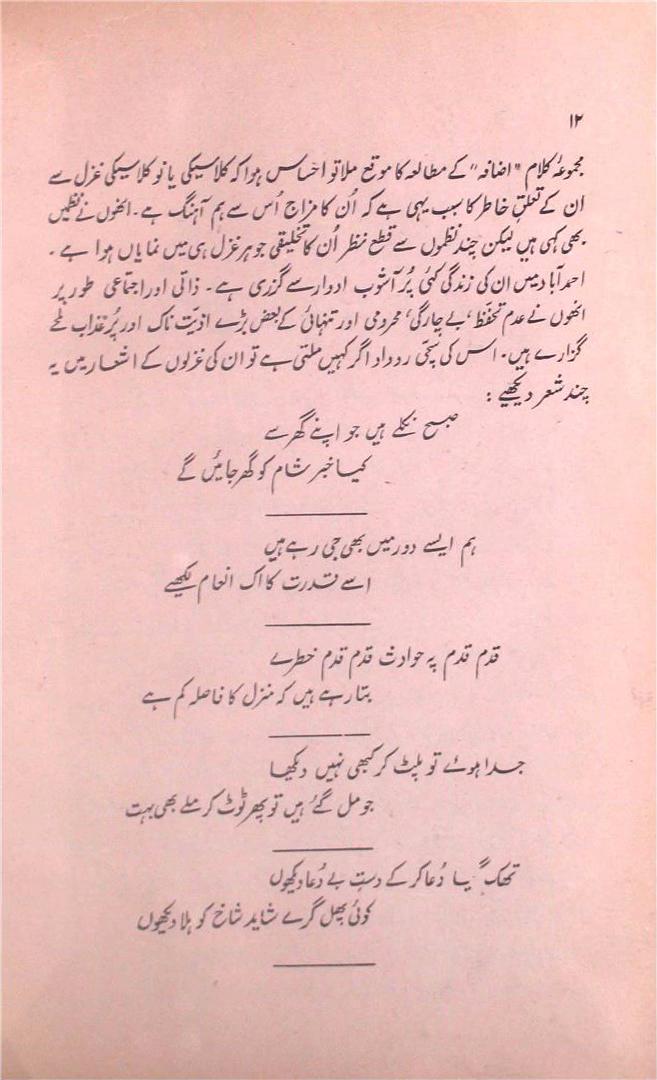 ۱۲
مجموعۂ کلام "اضافہ" کے مطالعہ کا موقع ملا تو احساس ہوا کہ کلاسیکی یا نو کلاسیکی غزل سے
ان کے تعلقِ خاطر کا سبب یہی ہے کہ اُن کا مزاج اُس سے ہم آہنگ ہے۔ انھوں نے نظمیں
بھی کہی ہیں لیکن چند نظموں سے قطع نظر اُن کا تخلیقی جوہر غزل ہی میں نمایاں ہوا ہے۔
احمد آباد میں ان کی زندگی کئی پُر آشوب ادوار سے گزری ہے۔ ذاتی اور اجتماعی طور پر
انھوں نے عدم تحفّظ، بے چارگی، محرومی اور تنہائی کے بعض بڑے اذیّت ناک اور پُر عذاب لمحے
گزارے ہیں۔ اس کی سچّی روداد اگر کہیں ملتی ہے تو ان کی غزلوں کے اشعار میں یہ
چند شعر دیکھیے :
صبح نکلے ہیں جو اپنے گھر سے
کیا خبر شام کو گھر جائیں گے
ہم ایسے دور میں بھی جی رہے ہیں
اسے قدرت کا اک انعام لکھیے
قدم قدم پہ حوادث قدم قدم خطرے
بتا رہے ہیں کہ منزل کا فاصلہ کم ہے
جدا ہوئے تو پلٹ کر کبھی نہیں دیکھا
جو مل گئے ہیں تو پھر ٹوٹ کر ملے بھی بہت
تھک گیا دُعا کر کے دستِ بے دُعا دیکھوں
کوئی پھل گرے شاید شاخ کو ہلا دیکھوں